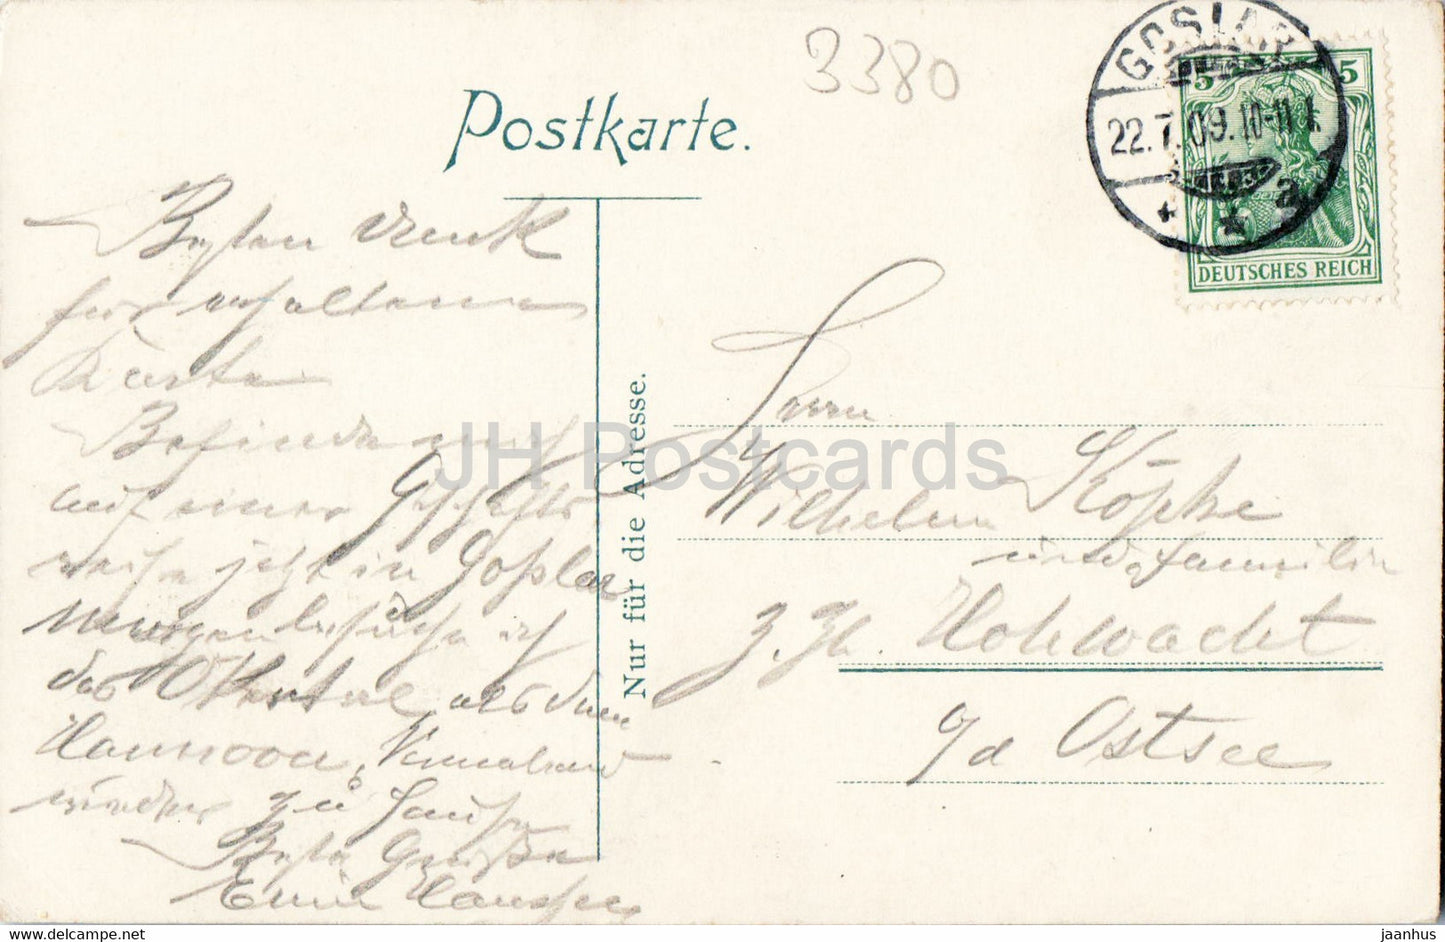 3380
Postkarte.
GOSLAR
22.7.09. 10-11
* * a
5 5
DEUTSCHES REICH
Besten Dank
für erhaltene
Karte
Befinde mich
auf einer Geschäfts
reise jetzt in Goslar
Morgen besuche ich
das Okertal, als dann
Hannover,
wieder zu Hause
Beste Grüße
Nur für die Adresse.
Herrn
Wilhelm Köpke
und Familie
z. Zt. Hohwacht
a/d Ostsee
JH Postcards
jaanhus.delcampe.net
jaanhus